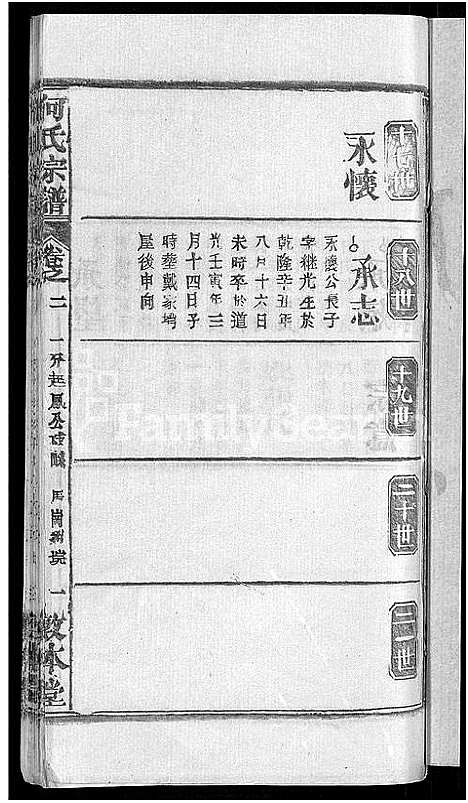 十七世
永懷
十八世
承志
永懷公長子
字継光生於
乾隆辛丑年
八月十六日
未時卒於道
光壬寅年三
月十四日子
時葬戴家塆
屋後申向
十九世
二十世
二一世
何氏宗譜
卷之二
一
敦本堂